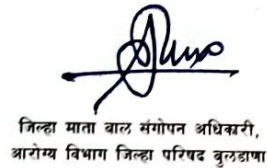 जिल्हा माता बाल संगोपन अधिकारी,
आरोग्य विभाग जिल्हा परिषद बुलडाणा